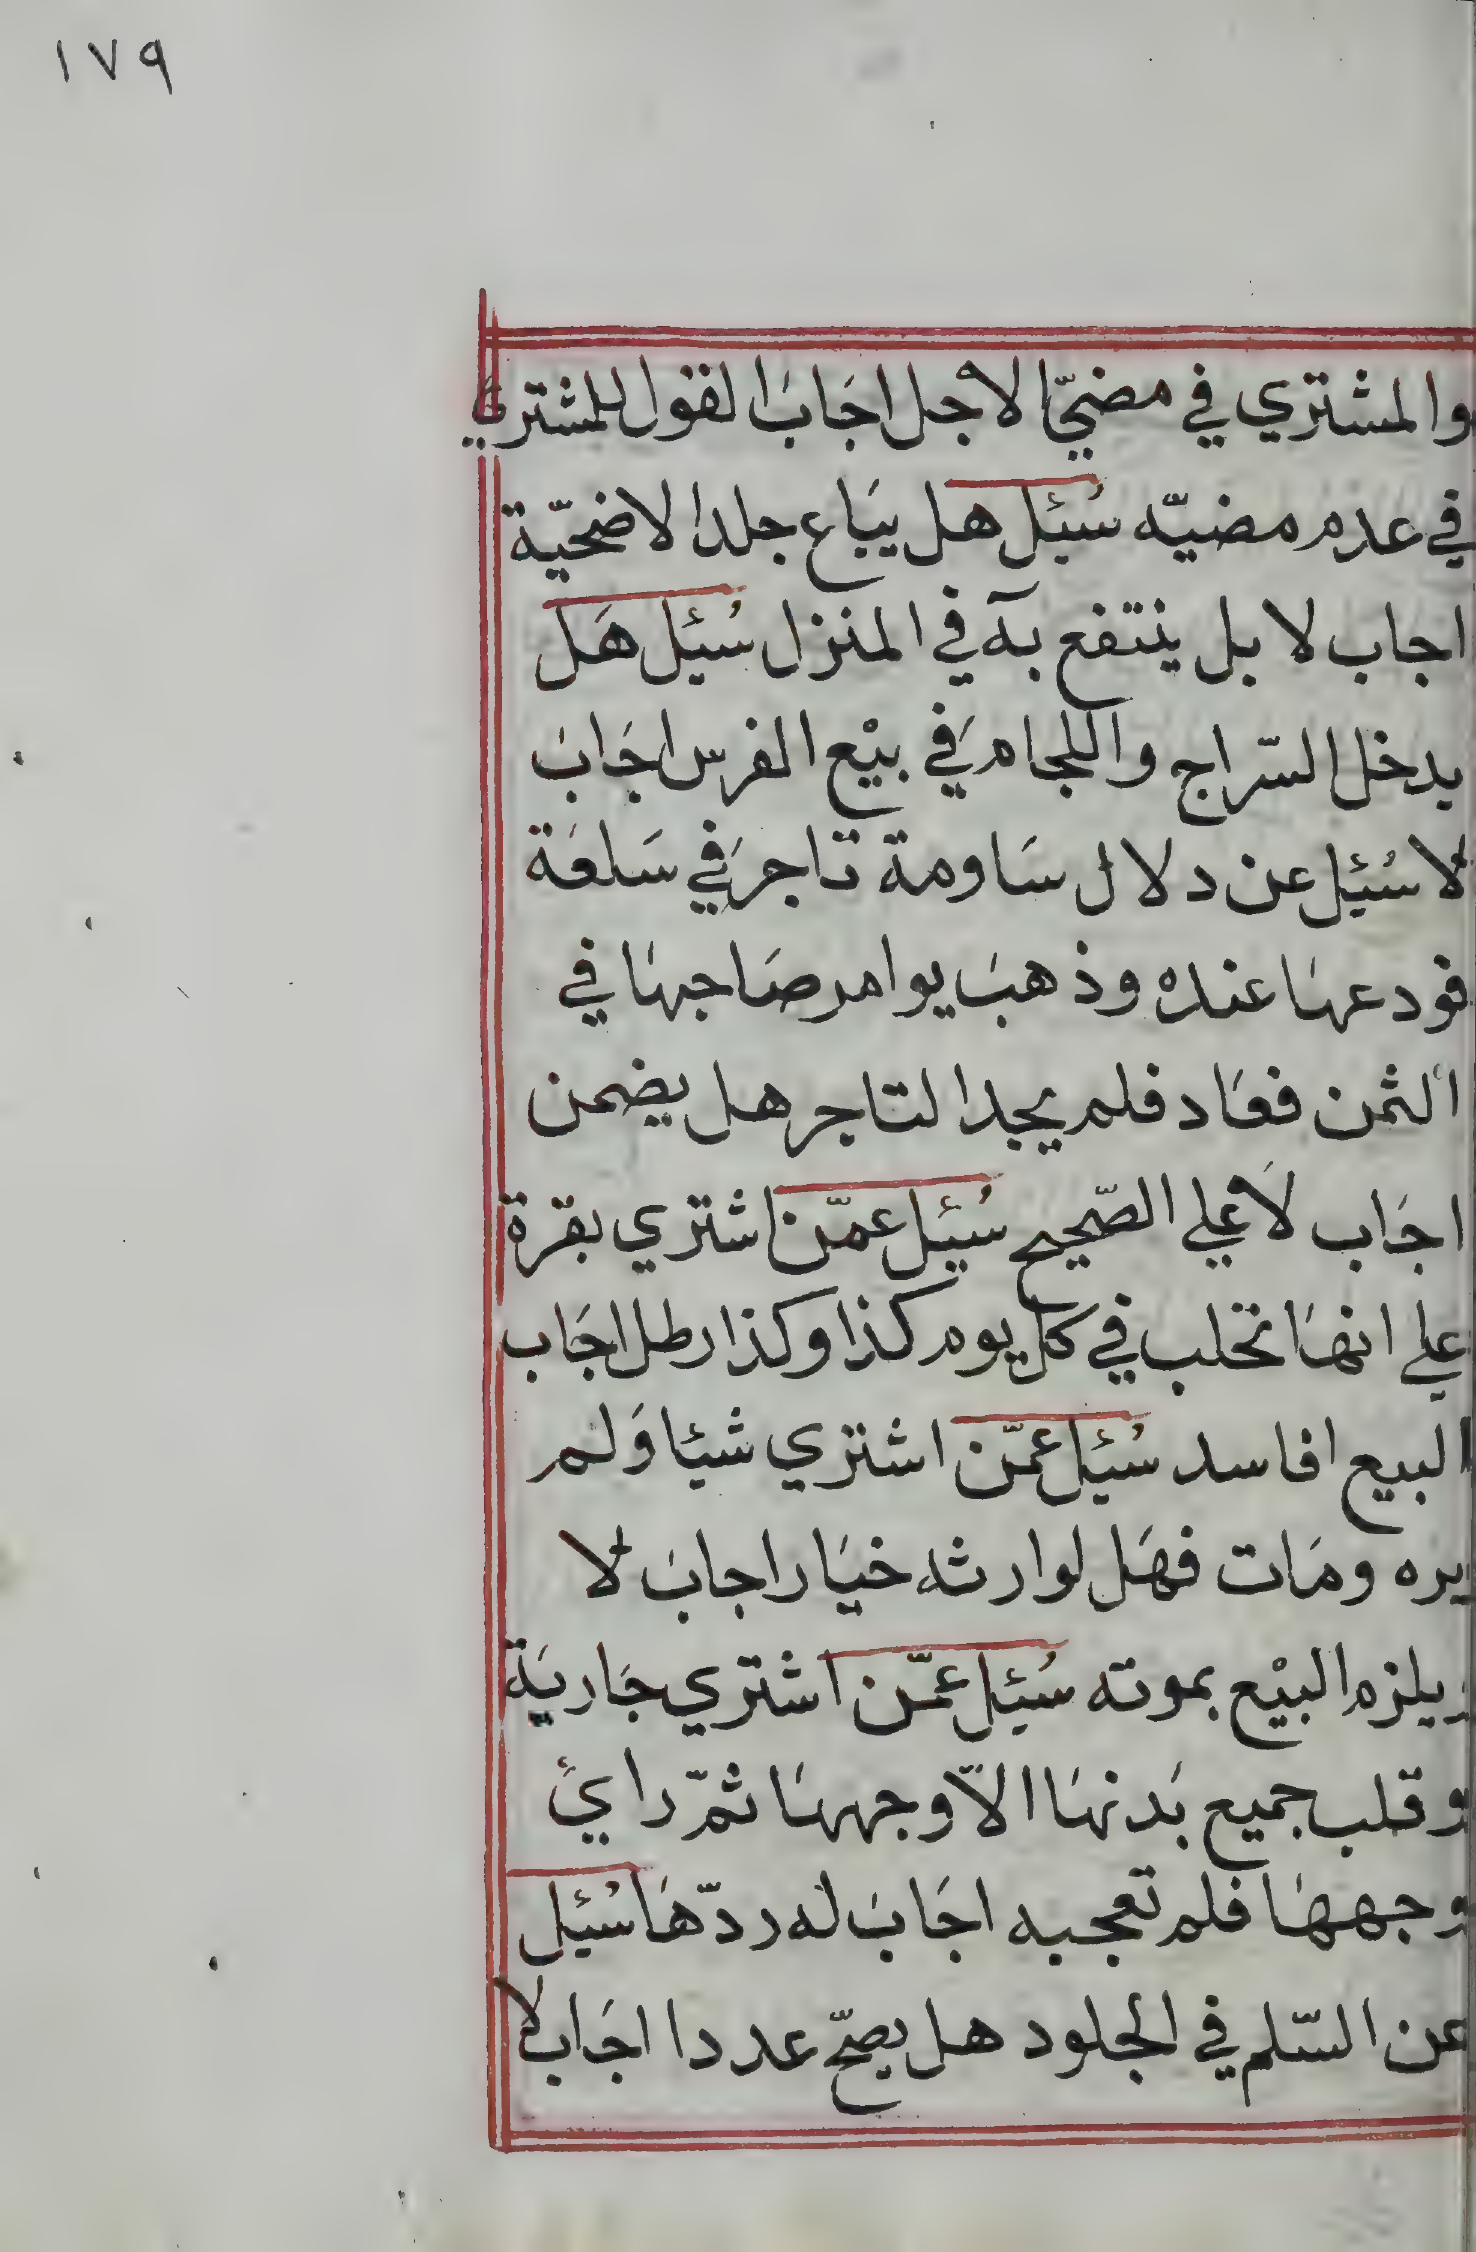 ١٧٩
والمشتري في مضيّ الاجل اجاب القول للمشتري
في عدم مضيّه سُئِل هل يباع جلد الاضحيّة
اجاب لا بل ينتفع به في المنزل سُئِل هَل
يدخل السّراج واللجام في بيْع الفرس اجَابَ
لا سُئِل عن دلال سَاومة تاجر في سَلعَة
فودعهَا عنده وذهبَ يوامر صَاحبهَا في
الثمن فعَاد فلم يجد التاجر هل يضمن
اجَاب لا علي الصّحيح سُئِل عمّن اشتري بقرة
علي انهَا تحلب في كل يوم كذا وكذا رطل اجَاب
البيع افاسد سُئِل عمّن اشتري شيئا وَلم
يره ومَات فهَل لوارثه خيَار اجابَ لا
ويلزم البيْع بموته سُئِل عمّن اشتري جَاريَة
وقلب جميع بَدنهَا الاّ وجههَا ثمّ راي
وجههَا فلم تعجبه اجَابَ له ردّهَا سُئِل
عن السّلم في الجلود هل يصحّ عددا اجَاب لا